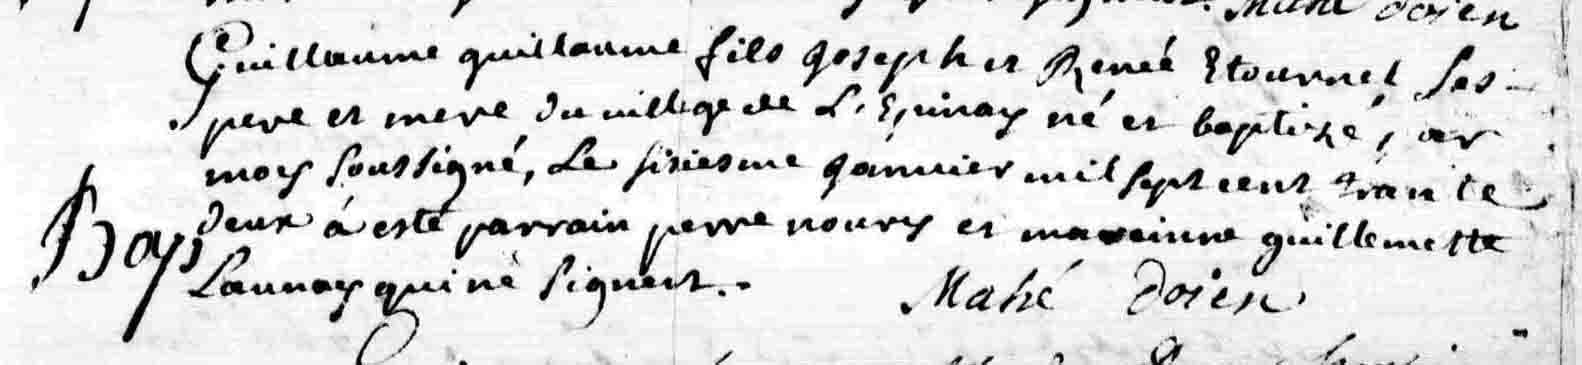 Mahé doien
Guillaume guillaume fils Joseph et Reneé Etournel Ses
pere et mere du village de L'Epinay né et baptizé, par
moy soussigné, Le sixiesme Janvier mil sept cent trante
deux à esté parrain perre noury et mareinne guillemette
Bap
Launay qui ne signent.
Mahé doien